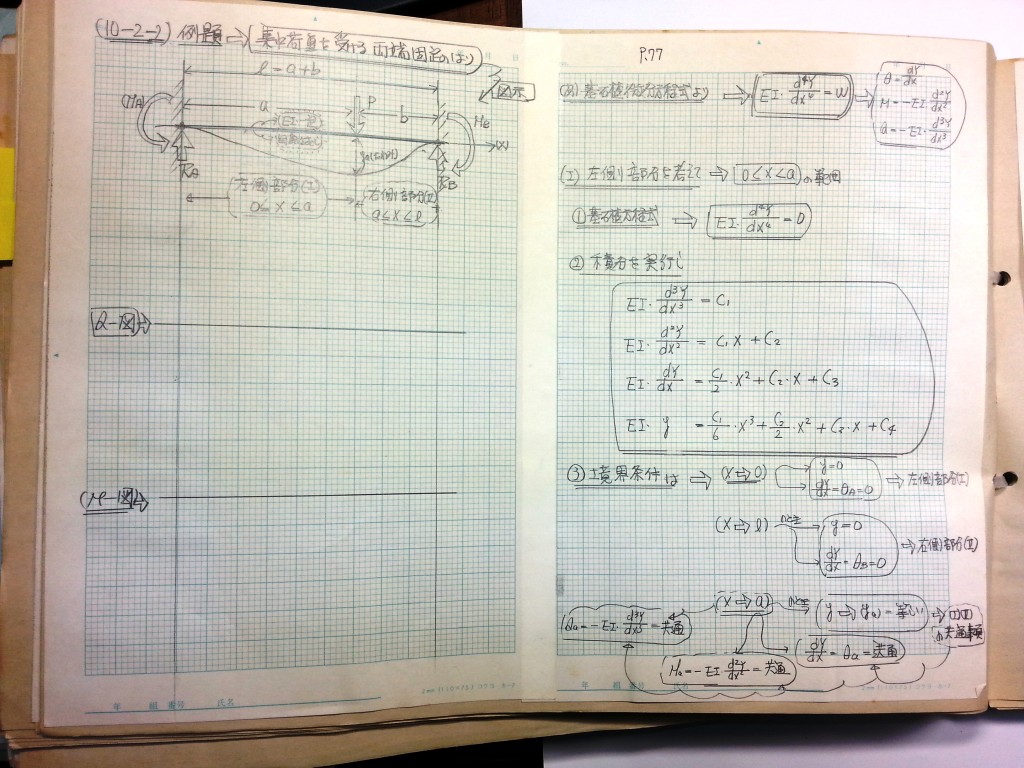 (10-2-2) 例題 ⇒ (集中荷重を受ける両端固定のはり)
ℓ = a+b
図示
(MA)
a
P
b
MB
(EI=一定)
x
RA
RB
左側部分(I)
0≦x≦a
右側部分(II)
a≦x≦ℓ
Q-図 ⇒
(M-図) ⇒
年 組 番号 氏名
P.77
基礎微分方程式より ⇒ EI・d⁴y/dx⁴ = w
θ = dy/dx
M = -EI・d²y/dx²
Q = -EI・d³y/dx³
(I) 左側部分を考えて ⇒ 0≦x≦a の範囲
① 基礎方程式 ⇒ EI・d⁴y/dx⁴ = 0
② 不積分を実行し
EI・d³y/dx³ = C₁
EI・d²y/dx² = C₁x + C₂
EI・dy/dx = C₁/2・x² + C₂・x + C₃
EI・y = C₁/6・x³ + C₂/2・x² + C₃・x + C₄
③ 境界条件は ⇒ (x⇒0)
y=0
dy/dx = θA = 0
⇒ 左側部分(I)
(x⇒ℓ) のとき
y = 0
dy/dx = θB = 0
⇒ 右側部分(II)
(x⇒a) のとき (y ⇒ ya) = 等しい ⇒ (I)(II)
の共通事項
Qa = -EI・d³y/dx³ = 共通
dy/dx = θa = 共通
Ma = -EI d²y/dx² = 共通